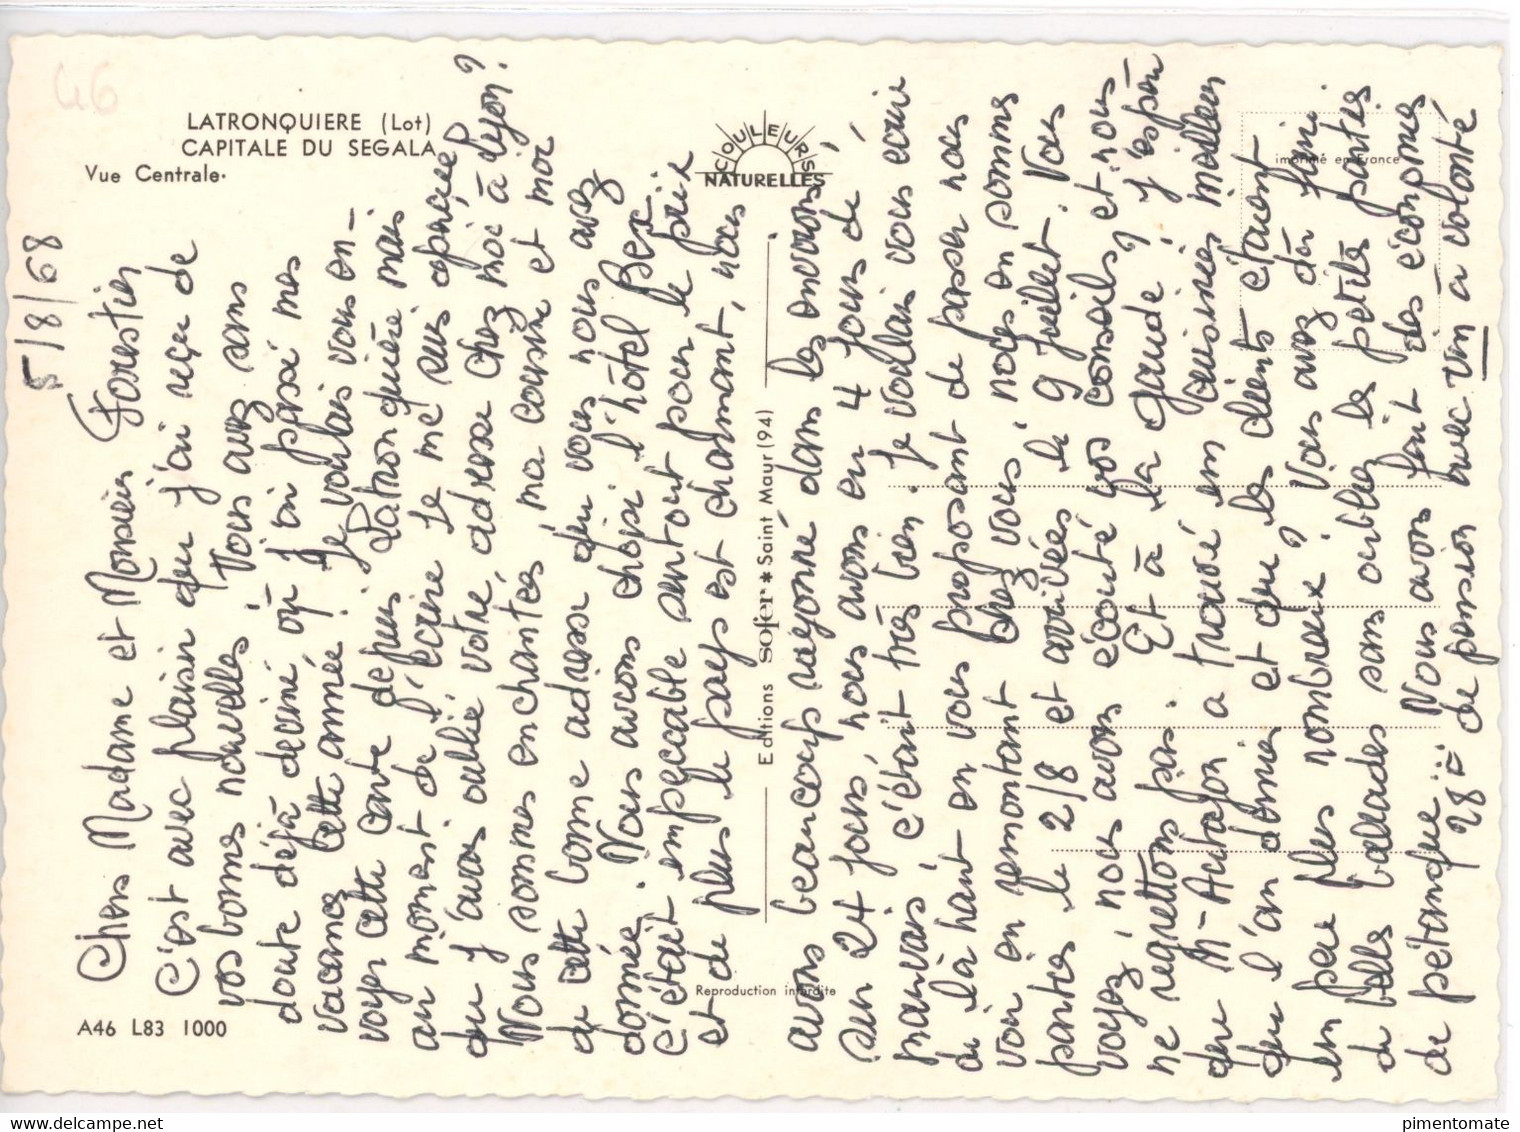 46
LATRONQUIERE (Lot)
CAPITALE DU SEGALA
Vue Centrale.
COULEURS
NATURELLES
imprimé en France
Editions Sofer * Saint Maur (94)
Reproduction interdite
A46 L83 1000
5/8/68
Chers Madame et Monsieur Forestier
C'est avec plaisir que j'ai reçu de
vos bonnes nouvelles. Vous avez sans
doute déjà deviné où j'ai passé mes
vacances cette année! Je voulais vous en-
voyer cette carte depuis Latronquière mais
au moment de l'écrire je me suis aperçue
que j'avais oublié votre adresse chez moi à Lyon?
Nous sommes enchantées, ma cousine et moi
de cette bonne adresse que vous nous avez
donnée. Nous avons choisi l'hôtel Bex.
C'était impeccable surtout pour le prix
et de plus le pays est charmant, nous
avons beaucoup rayonné dans les environs,
sur 24 jours, nous avons eu 4 jours de
mauvais, c'était très bien. Je voulais vous écrire
de là-haut en vous proposant de passer vous
voir en remontant chez vous, nous en sommes
parties le 2/8 et arrivées le 9 Juillet. Vous
voyez, nous avons écouté vos conseils, et nous
ne regrettons pas. Et à la gaude, j'espère
que M. Autajon a trouvé un cuisinier meilleur
que l'an dernier et que les clients étaient
un peu plus nombreux, Vous avez dû faire
de belles ballades sans oublier les petites parties
de pétanque... Nous avons fait des économies
28= de pension avec vin à volonté